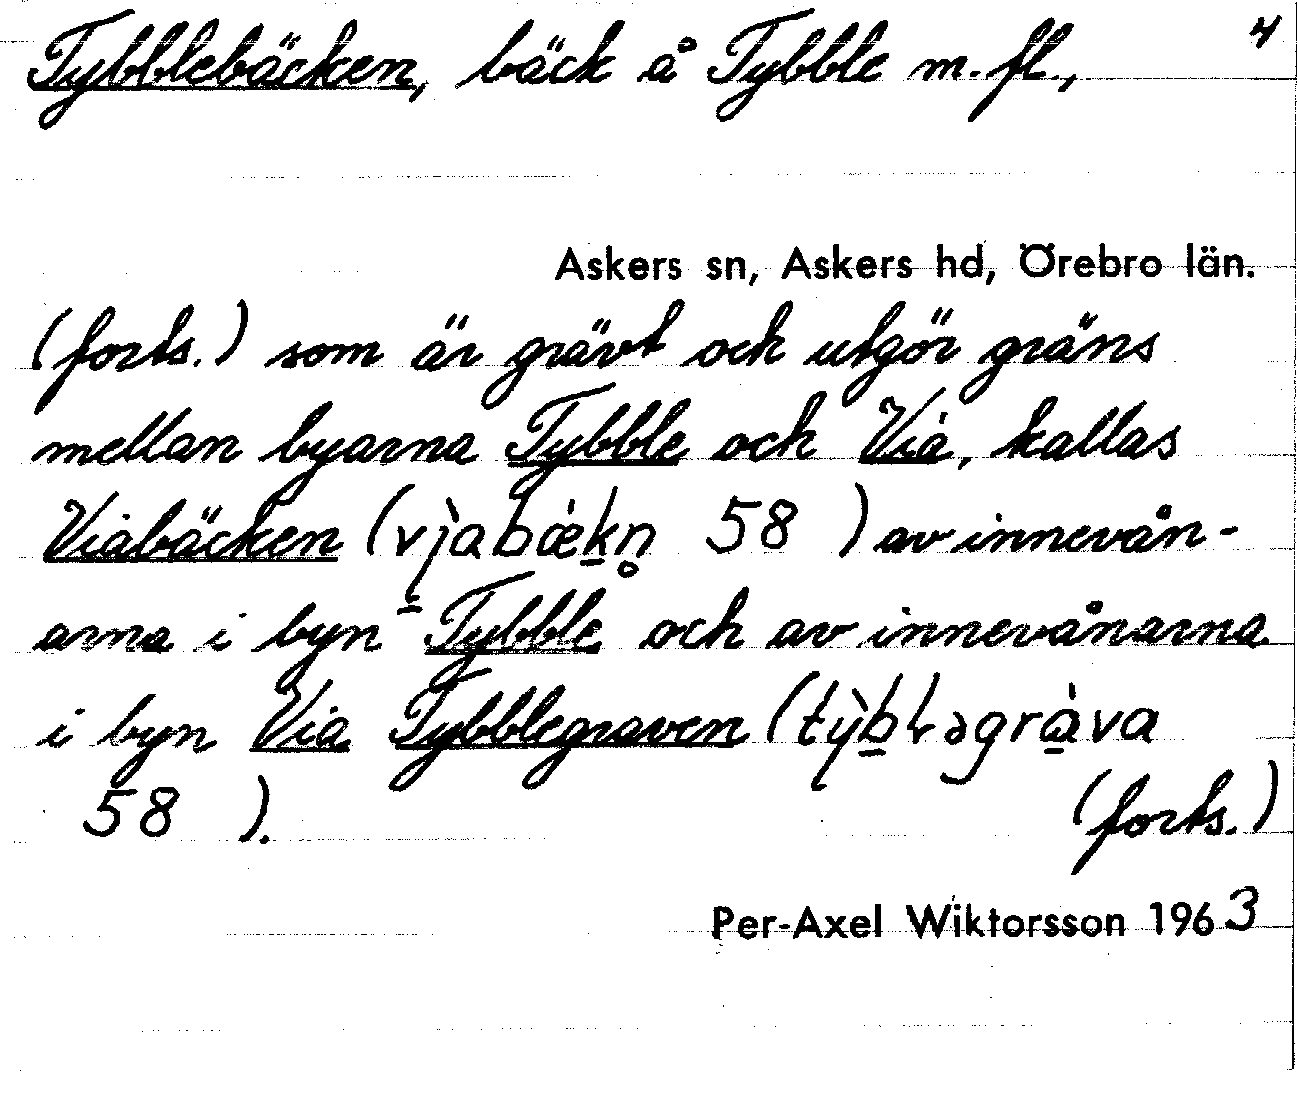 Tybblebäcken, bäck å Tybble m. fl., 4
Askers sn, Askers hd, Örebro län.
(forts.) som är grävt och utgör gräns
mellan byarna Tybble och Via, kallas
Viabäcken (vì̠abǽk̠n̥ 58 ) av innevån-
arna i byn Tybble och av innevånarna
i byn Via Tybblegraven (tỳb̠ɬəgrá̠va
58 ). (forts.)
Per-Axel Wiktorsson 1963